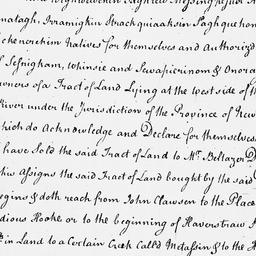 malagh, Arranighin Strachquiaahsin Saghquehon
kchenrehin Natives for themselves and Authoriz'd
Sesnigham, Whinsie and Sewapierinom & Onora
owners of a Tract of Land Lying at the west side of th
River under the Jurisdiction of the Province of New
which do Acknowledge and Declare for themselves
have Sold the said Tract of Land to Mr. Beltazer D
his Assigns the said Tract of Land bought by the said
egins & doth reach from John Clawsen to the Place
dious Hooke or to the beginning of Haverstraw
in Land to a Certain Creek Call'd Metassin & to the